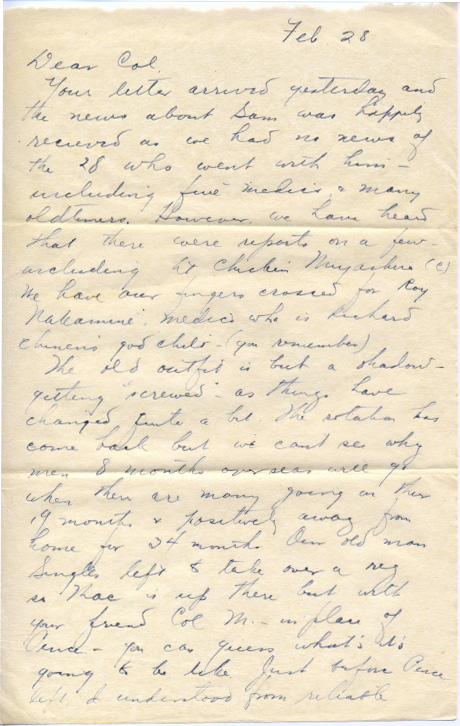 Feb 28
Dear Col.
Your letter arrived yesterday and
the news about Sam was happily
recieved as we had no news of
the 28 who went with him -
including five medics & many
oldtimers. However, we have heard
that there were reports on a few -
including Lt Chicken Miyashiro (C)
We have our fingers crossed for Roy
Nakamine, medic who is Richard
Chinen's god child - (you remember)
The old outfit is but a shadow -
getting "screwed" - as things have
changed quite a bit The rotation has
come back but we cant see why
men 8 months overseas will go
when there are many going on their
19 months & positively away from
home for 34 months Our old man
Singles left to take over a reg
so Mac is up there but with
your friend Col M. - in place of
Pence - you can guess what's it's
going to be like Just before Pence
left I understood from reliable